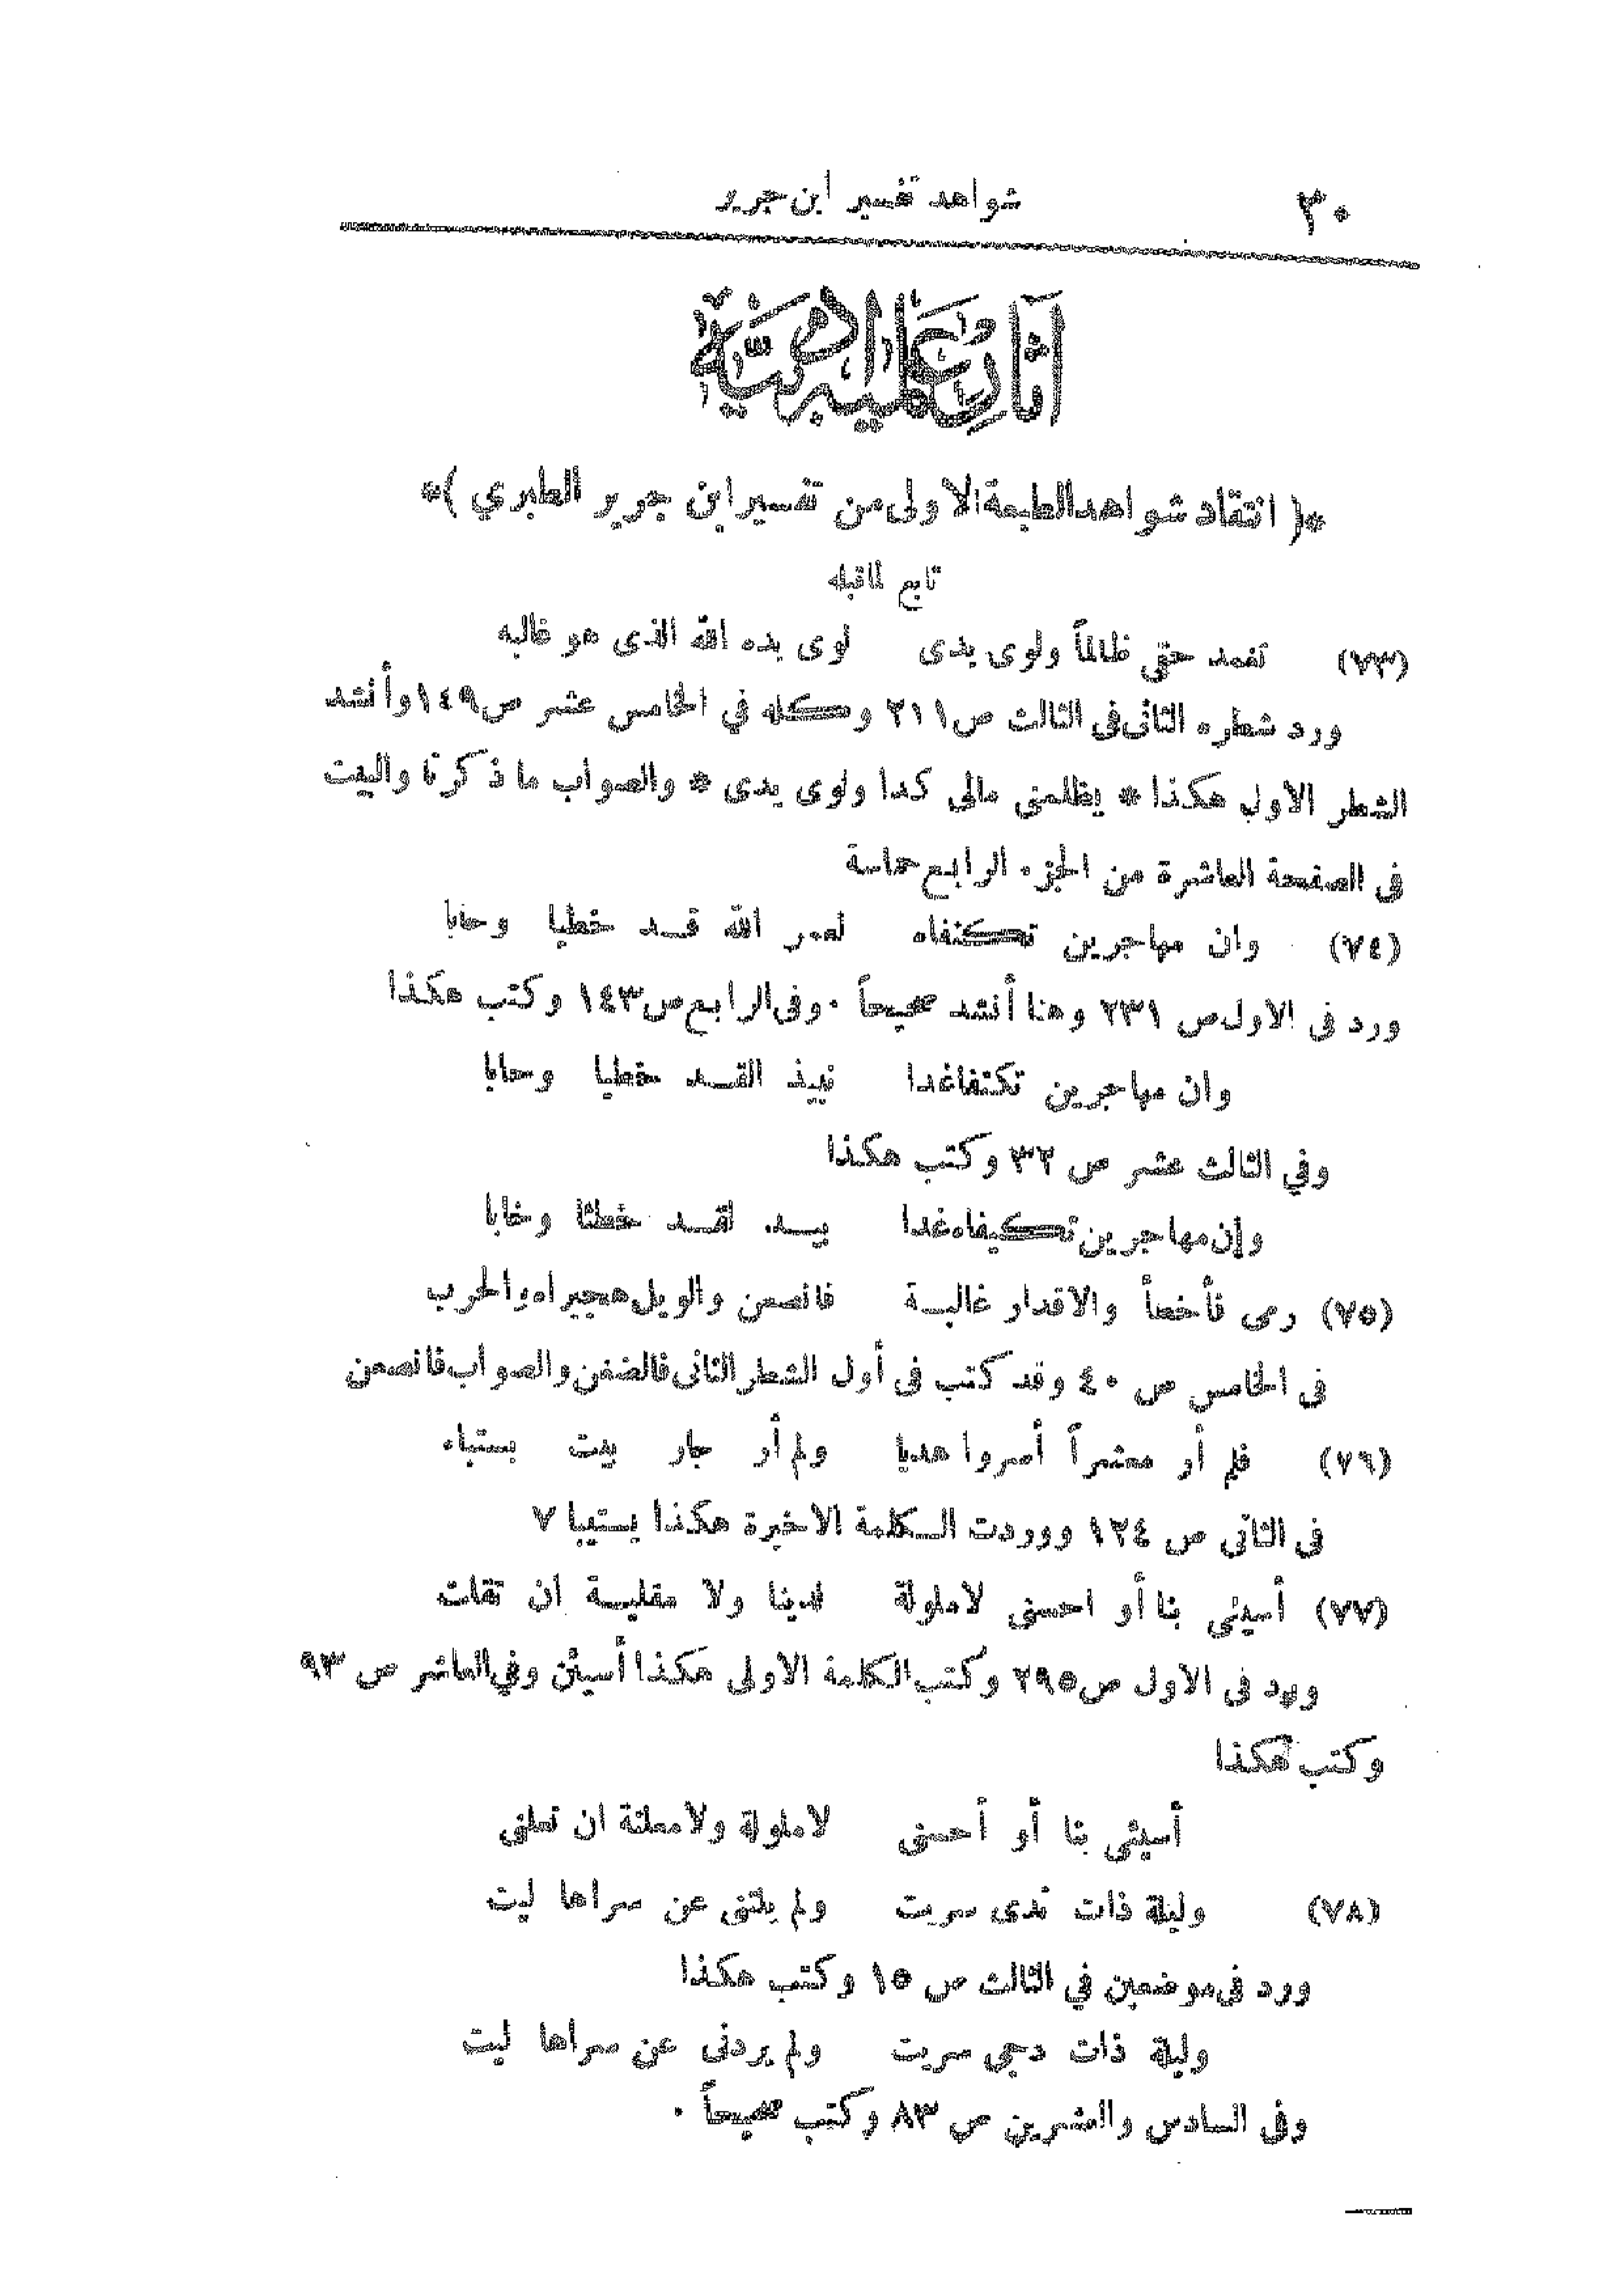 ٣٠ شواهد تفسير ابن جرير
آثار علمية أدبية
*( انتقاد شواهد الطبعة الاولى من تفسير ابن جرير الطبري )*
تابع لما قبله
(٧٣) تغمد حقي ظالماً ولوى يدى لوى يده الله الذى هو غالبه
ورد شطره الثانى فى الثالث ص ٢١١ وكله في الخامس عشر ص ١٤٩ وأنشد
الشطر الاول هكذا * يظلمنى مالى كدا ولوى يدى * والصواب ما ذكرنا والبيت
فى الصفحة العاشرة من الجزء الرابع حماسة
(٧٤) وان مهاجرين تكنفاه لعمر الله قد خطيا وحابا
ورد فى الاول ص ٢٣١ وهنا أنشد صحيحاً ٠ وفى الرابع ص ١٤٣ وكتب هكذا
وان مهاجرين تكتفاغدا نييذ القد خطيا وحابا
وفي الثالث عشر ص ٣٢ وكتب هكذا
وإن مهاجرين تكيفاه غدا بيد. لقد خطئا وخابا
(٧٥) رمى فأخطأ والاقدار غالبة فانصعن والويل هجيراه والحرب
فى الخامس ص ٤٠ وقد كتب فى أول الشطر الثانى فالضغن والصواب فانصعن
(٧٦) فلم أر معشراً أسروا هديا ولم أر جار بيت يستباء
فى الثانى ص ١٢٤ ووردت الكلمة الاخيرة هكذا يستيبا ٧
(٧٧) أسيئى بنا أو احسنى لاملولة لدينا ولا مقلية ان تقلت
ورد فى الاول ص ٢٩٥ وكتب الكلمة الاولى هكذا أسيئن وفي العاشر ص ٩٣
وكتب هكذا
أسيئى بنا أو أحسنى لاملولة ولا معلنة ان تعلنى
(٧٨) وليلة ذات ندى سريت ولم يلتنى عن سراها ليت
ورد فى موضعين في الثالث ص ١٥ وكتب هكذا
وليلة ذات دجى سريت ولم يردنى عن سراها ليت
وفى السادس والعشرين ص ٨٣ وكتب صحيحاً ٠